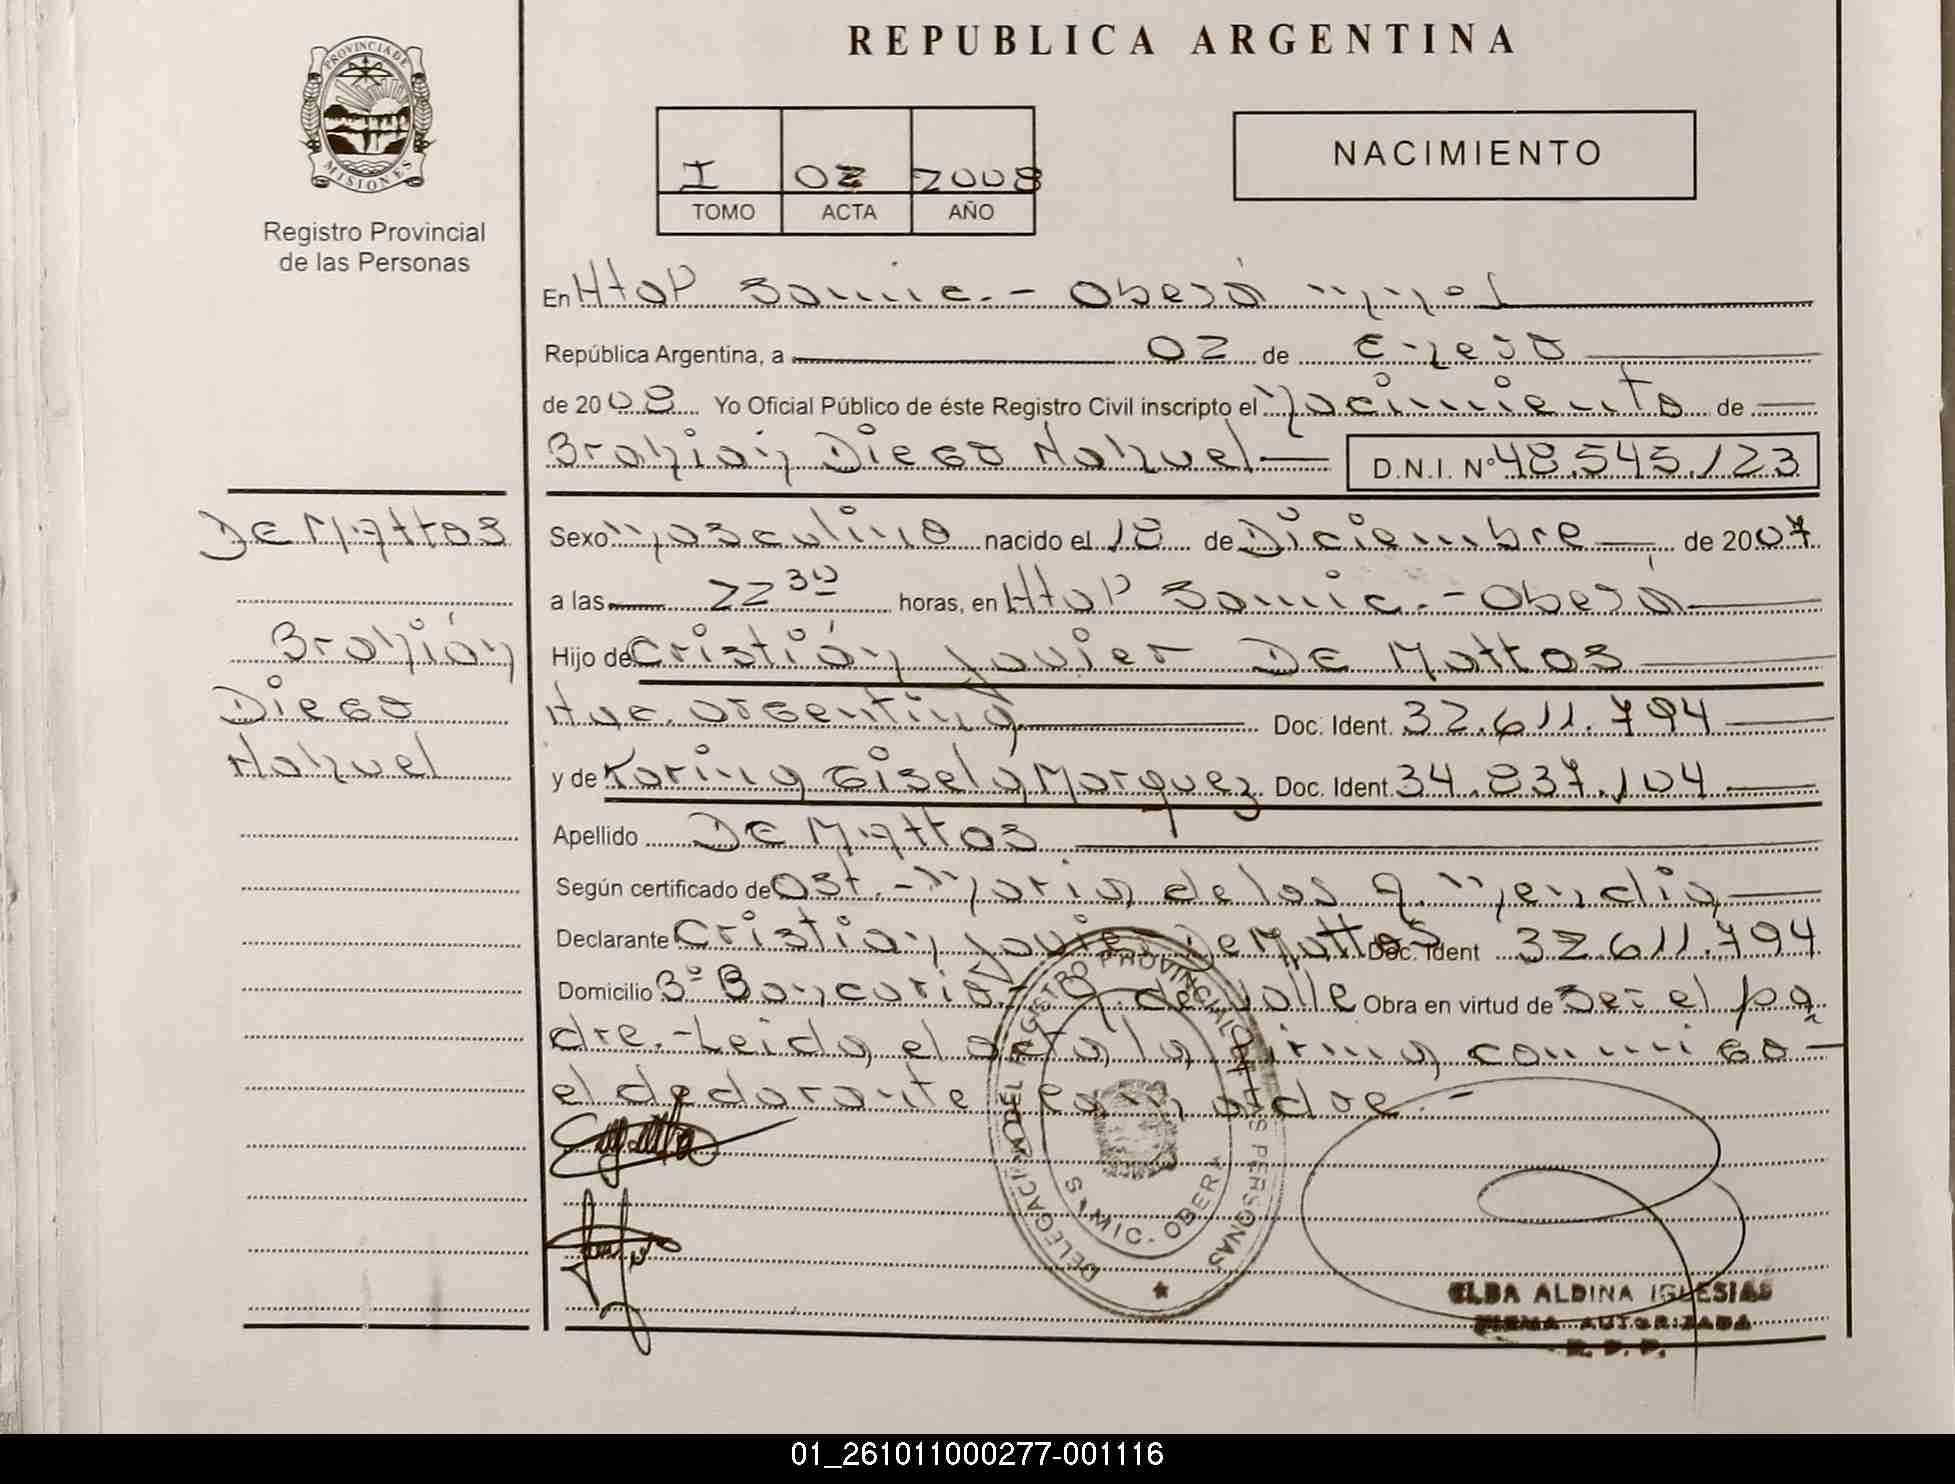 REPUBLICA ARGENTINA
PROVINCIA DE
MISIONES
Registro Provincial
de las Personas
I 02 2008
TOMO ACTA AÑO
NACIMIENTO
En Htal Samic.- Oberá Mnes
República Argentina, a 02 de Enero
de 2008 Yo Oficial Público de éste Registro Civil inscripto el Nacimiento de
Brahian Diego Nahuel D.N.I. Nº 48.545.123
De Mattos
Brahián
Diego
Nahuel
Sexo Masculino nacido el 18 de Diciembre de 2007
a las 22 30 horas, en Htal Samic.- Oberá
Hijo de Cristián Javier De Mattos
Nac. argentina Doc. Ident. 32.611.794
y de Karina Gisela Marquez Doc. Ident. 34.837.104
Apellido De Mattos
Según certificado de Obst.- Maria de los A. Mendia
Declarante Cristian Javier De Mattos Doc. Ident 32.611.794
Domicilio Bº Bancario.- A. del Valle Obra en virtud de Ser el pa
dre.- Leida el acta la firma conmigo
el declarante y la madre.-
DELEGACION DEL REGISTRO PROVINCIAL DE LAS PERSONAS
SAMIC - OBERA
ELBA ALDINA IGLESIAS
FIRMA AUTORIZADA
R. P. P.
01_261011000277-001116